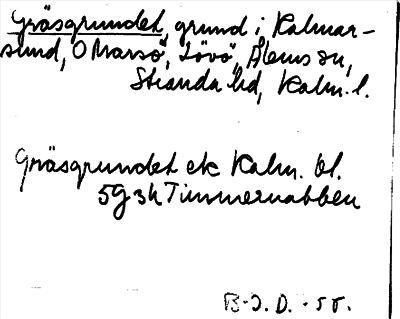 Gräsgrundet, grund i Kalmar-
sund, O Marsö, Lövö, Ålems sn,
Stranda hd, Kalm. l.
Gräsgrundet ek Kalm. bl.
5G3h Timmernabben
B-J. D. -58.